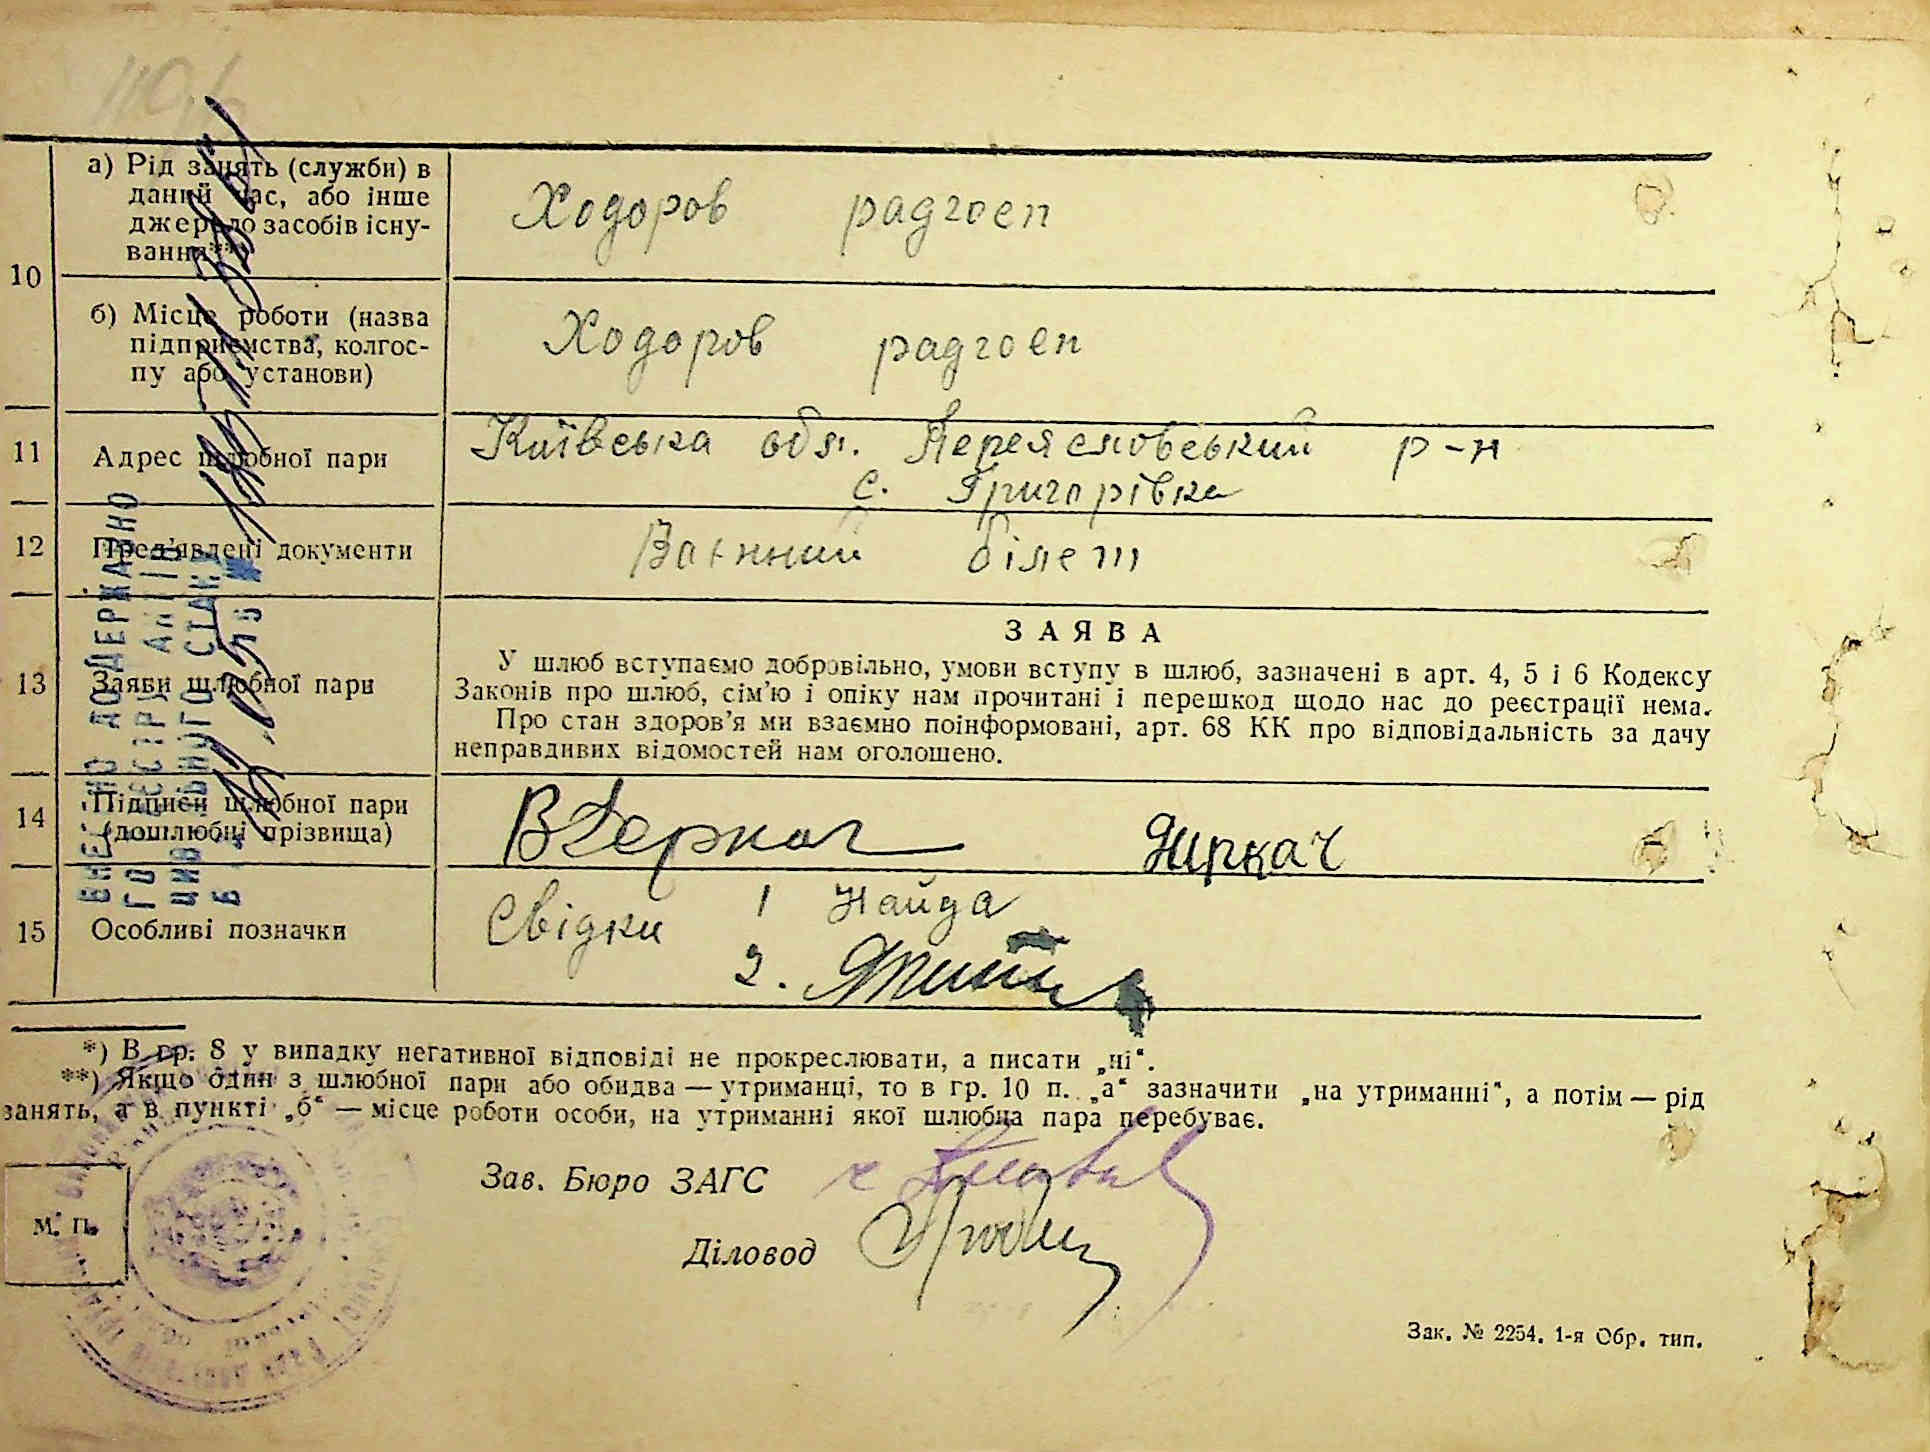 а) Рід занять (служби) в
даний час, або інше
джерело засобів існу-
вання**)
Ходоров радгосп
10
б) Місце роботи (назва
підприємства, колгос-
пу або установи)
Ходоров радгосп
11
Адрес шлюбної пари
Київська обл. Переясловський р-н
с. Григорівка
12
Пред'явлені документи
Воєнний білет
13
Заяви шлюбної пари
ЗАЯВА
У шлюб вступаємо добровільно, умови вступу в шлюб, зазначені в арт. 4, 5 і 6 Кодексу
Законів про шлюб, сім'ю і опіку нам прочитані і перешкод щодо нас до реєстрації нема.
Про стан здоров'я ми взаємно поінформовані, арт. 68 КК про відповідальність за дачу
неправдивих відомостей нам оголошено.
14
Підписи шлюбної пари
(дошлюбні прізвища)
ВДеркач
15
Особливі позначки
Свідки 1 Найда
2.
ВНЕСЕНО ДО ДЕРЖАВНО
ГО РЕЄСТРУ АКТІВ
ЦИВІЛЬНОГО СТАНУ
*) В гр. 8 у випадку негативної відповіді не прокреслювати, а писати „ні“.
**) Якщо один з шлюбної пари або обидва — утриманці, то в гр. 10 п. „а“ зазначити „на утриманні“, а потім — рід
занять, а в пункті „б“ — місце роботи особи, на утриманні якої шлюбна пара перебуває.
Зав. Бюро ЗАГС
М. П.
Діловод
Зак. № 2254. 1-я Обр. тип.